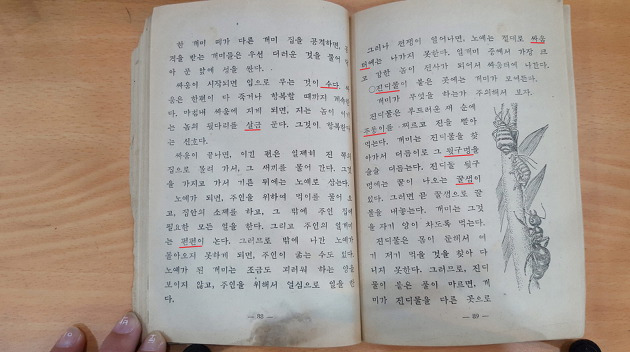 한 개미 떼가 다른 개미 집을 공격하면,
격을 받는 개미들은 우선 더러운 것을 물어
아 문 앞에 성을 싼다.
싸움이 시작되면 입으로 무는 것이 수다.
움은 한편이 다 죽거나 항복할 때까지 계속
다. 마침내 싸움에 지게 되면, 지는 놈이
는 놈의 뒷다리를 살금 문다. 그것이 항복한다
는 신호다.
싸움이 끝나면, 이긴 편은 일제히 진 쪽의
집으로 몰려 가서, 그 새끼를 물어 간다. 그것
을 가지고 가서 기른 뒤에는 노예로 삼는다.
노예가 되면, 주인을 위하여 먹이를 물어 오
고, 집안의 소제를 하고, 그 밖에 주인 집에
필요한 모든 일을 한다. 그리고 주인의 일개미
는 편편이 논다. 그러므로 밖에 나간 노예가
돌아오지 못하게 되면, 주인이 굶는 수도 있다.
노예가 된 개미는 조금도 괴러워 하는 양을
보이지 않고, 주인을 위해서 열심으로 일을 한
다.
— 88 —
그러나 전쟁이 일어나면, 노예는 절대로 싸움
터에는 나가지 못한다. 일개미 중에서 가장 크
고 강한 놈이 전사가 되어서 싸움터에 나간다.
○진디물이 붙은 곳에는 개미가 모여든다.
개미가 무엇을 하는가 주의해서 보자.
진디물은 부드러운 재 순에
주둥이를 찌르고 진을 빨아
먹는다. 개미는 진디물을 찾
아가서 더듬이로 그 뒷구멍을
슬슬 더듬는다. 진디물 뒷구
멍에는 꿀이 나오는 꿀샘이
있다. 그러면 곧 꿀샘으로 꿀
물을 내놓는다. 개미는 그것
을 자기 양이 차도록 먹는다.
진디물은 몸이 둔해서 여
기 저기 먹을 것을 찾아 다
니지 못한다. 그러므로, 진디
물이 붙은 풀이 마르면, 개
미가 진디물을 다른 곳으로
— 89 —